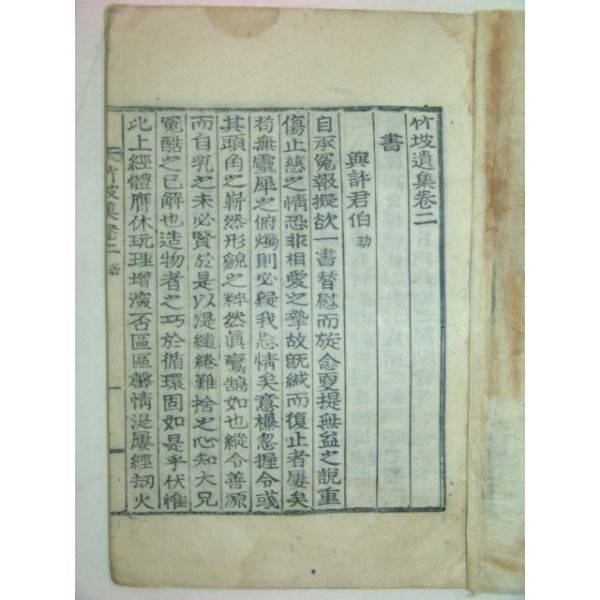 竹坡遺集卷二
書
與許君伯 玏
自承冤報擬欲一書替慰而旋念更提無益之說重
傷止慈之情恐非相愛之摯故旣緘而復止者屢矣
苟無靈犀之俯燭則必疑我忘情矣意襮忽握令彧
其頭角之嶄然形貌之粹然眞鸞鵠如也縱令善源
而自乳之未必賢於是以湜繾綣難捨之心知大兄
冤酷之已解也造物者之巧於循環固如是乎伏惟
比上經體膺休玩理增演否區區馨情湜屢經劫火
竹坡集卷二 書 一